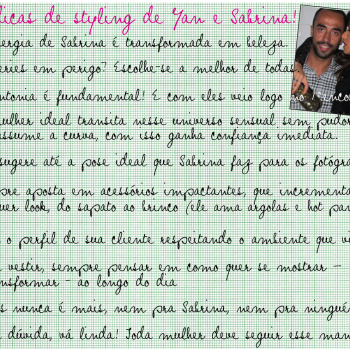 dicas de styling de Yan e Sabrina!
ergia de Sabrina é transformada em beleza.
éries em perigo? Escolhe-se a melhor de todas
ntonia é fundamental! E com eles veio logo no 1º encon
ulher ideal transita nesse universo sensual sem pudor
assume a curva, com isso ganha confiança imediata.
sugere até a pose ideal que Sabrina faz para os fotógra
pre aposta em acessórios impactantes, que incrementa
uer look, do sapato ao brinco (ele ama argolas e hot pan
o perfil de sua cliente respeitando o ambiente que vi
vestir, sempre pensar em como quer se mostrar –
nsformar – ao longo do dia
s nunca é mais, nem pra Sabrina, nem pra ningué
dúvida, vá linda! Toda mulher deve seguir esse man